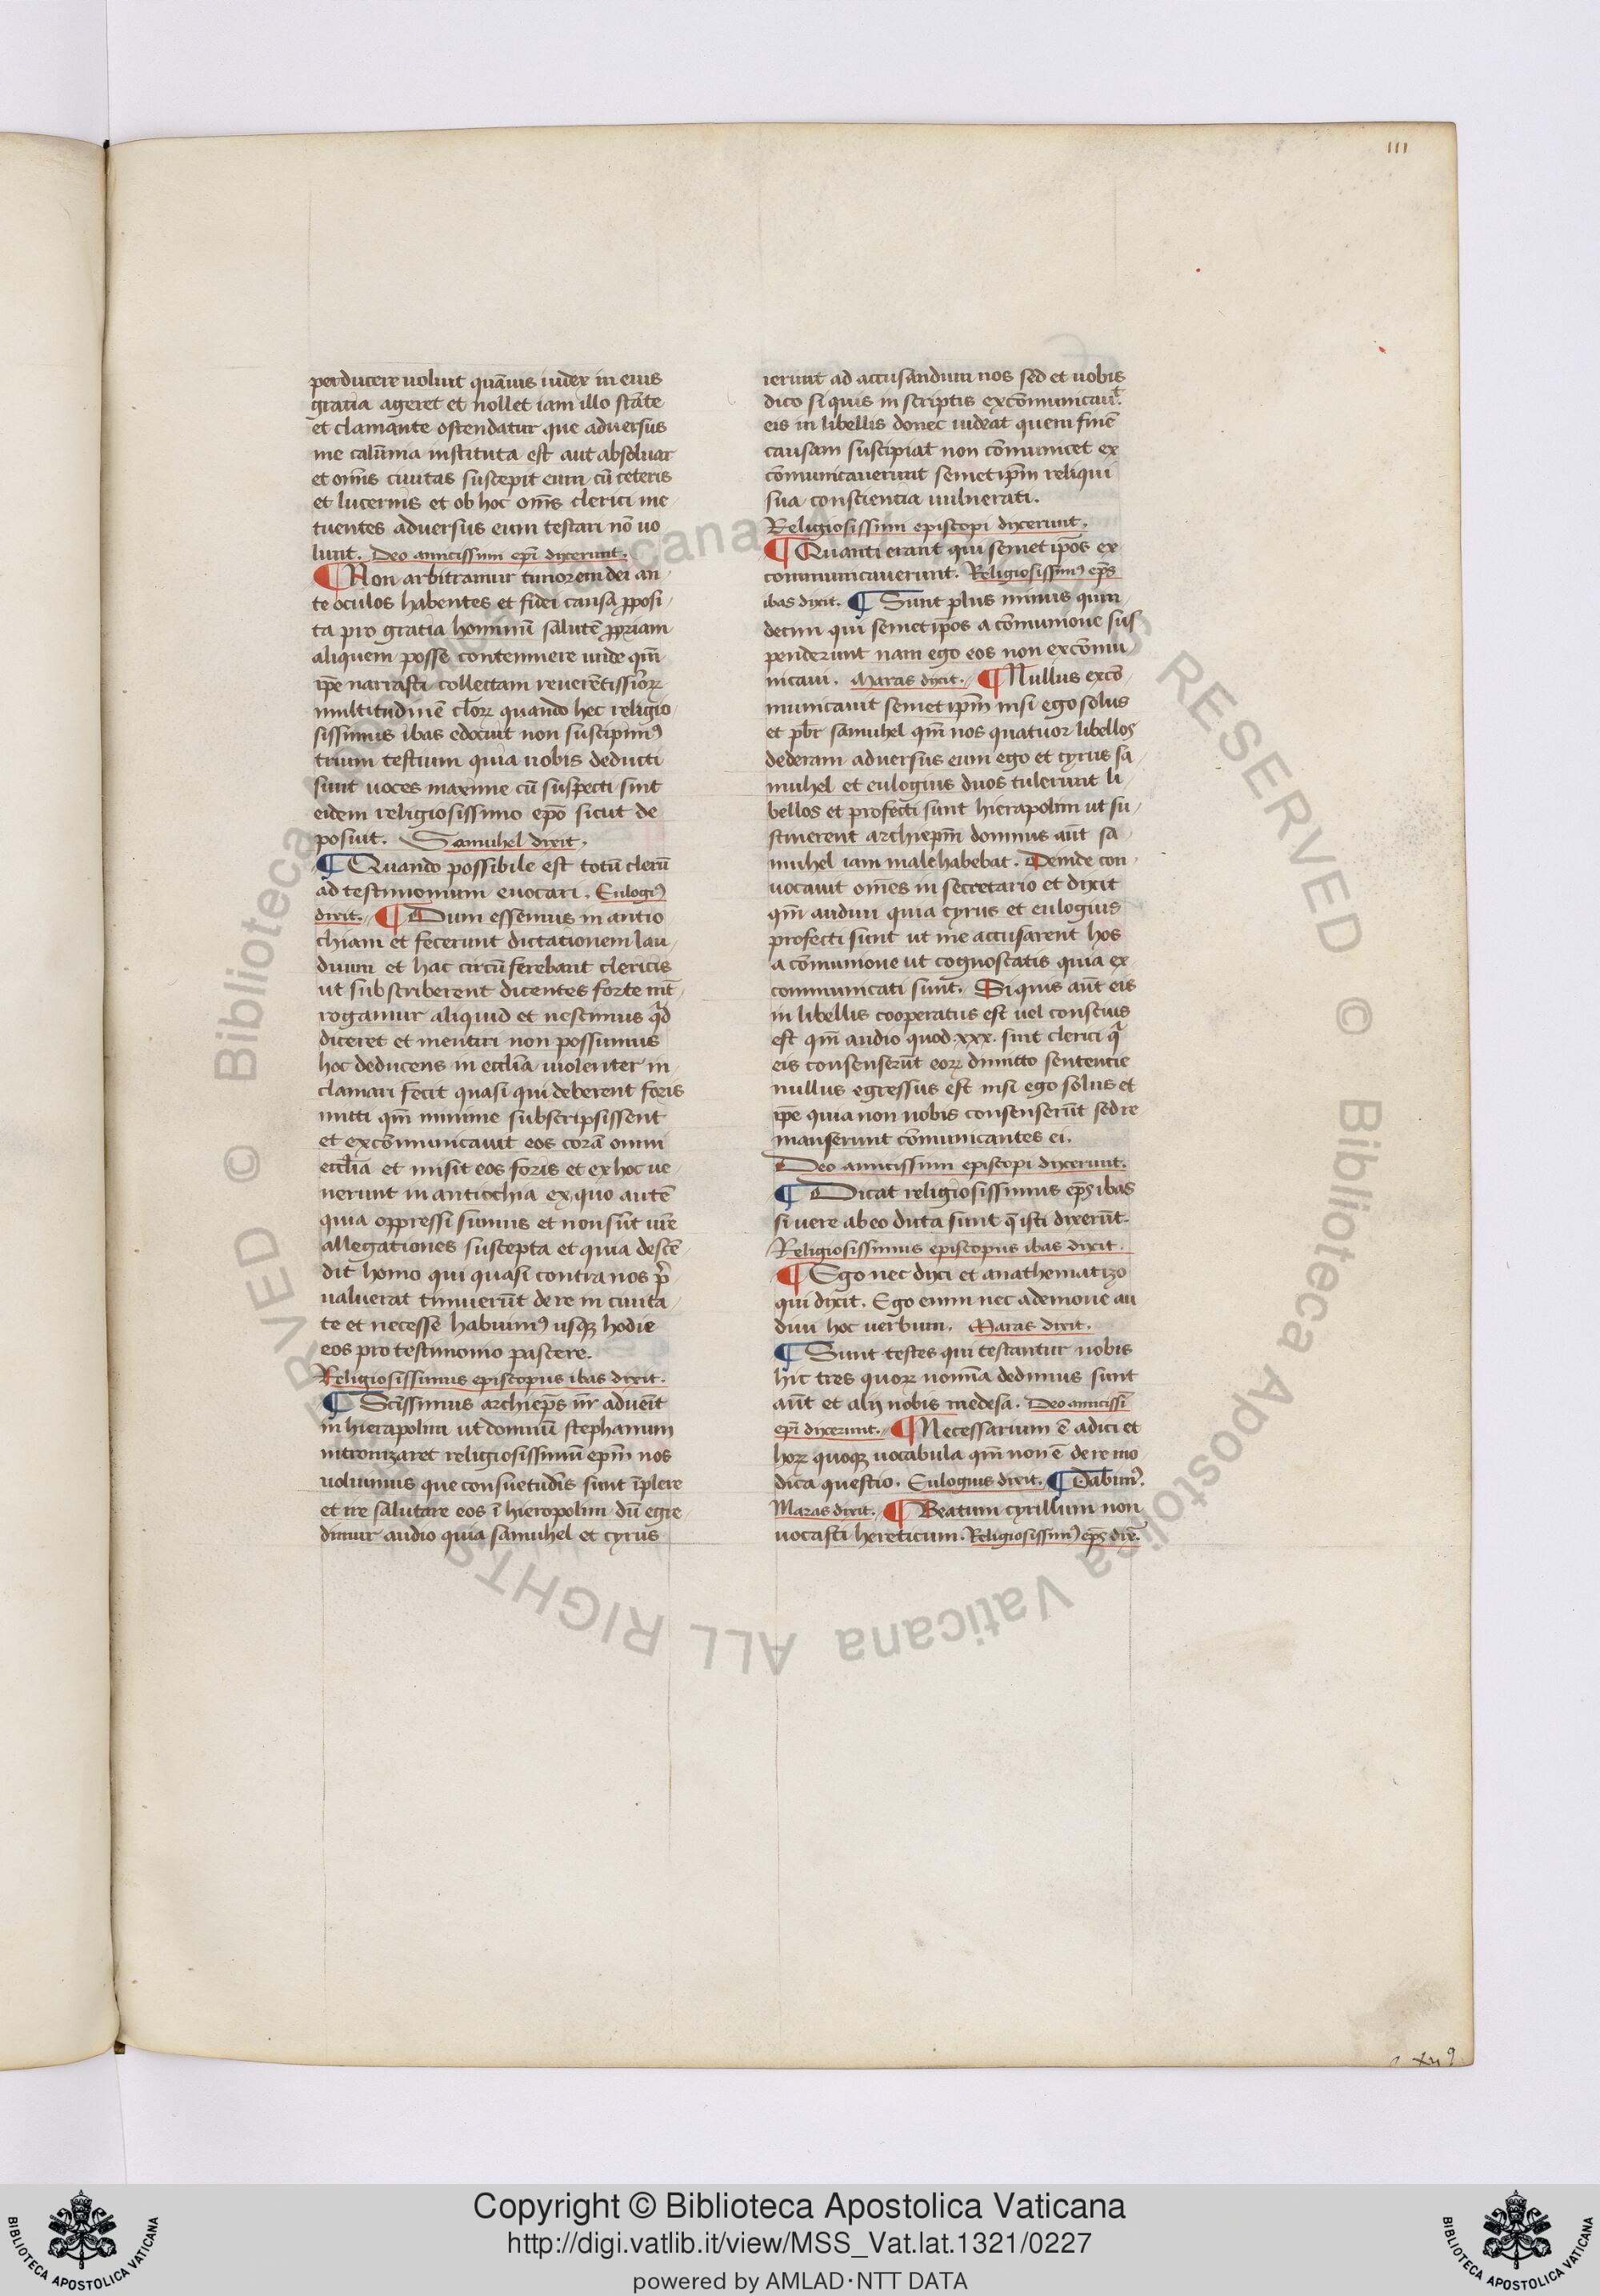 111
perducere uoluit quāuis iudex in eius
gratia ageret et nollet iam illo stāte
et clamante ostendatur que aduersus
me calūnia instituta est aut absoluat
et om̄s ciuitas suscepit eum cū ceteris
et lucernis et ob hoc om̄s clerici me
tuentes aduersus eum testari nō uo
lunt. Deo amicissimi ep̄i dixerunt.
¶ Non arbitramur timorem dei an
te oculos habentes et fidei causa ꝓposi
ta pro gratia hominū salutē ꝓpriam
aliquem posse contemnere unde qm̄
ip̄e narrasti collectam reuerētissīorꝝ
multitudinē cl̄orꝝ quando hec religio
sissimus ibas edocuit non suscipimꝰ
trium testium quia nobis deducti
sunt uoces maxime cū suspecti sint
eidem religiosissimo ep̄o sicut de
posuit. Samuhel dixit.
¶ Quando possibile est totū clerū
ad testimonium euocari. Eulogiꝰ
dixit. ¶ Dum essemus in antio
chiam et fecerunt dictationem lau
dum et hac circū ferebant clericis
ut subscriberent dicentes forte int̄
rogamur aliquid et nescimus qd
diceret et mentiri non possumus
hoc deducens in eccl̄ia uiolenter in
clamari fecit quasi qui deberent foris
mitti qm̄ minime subscripsissent
et excōmunicauit eos corā omni
eccl̄ia et misit eos foris et ex hoc ue
nerunt in antiochia ex quo autē
quia oppressi sumus et non sūt ur̄e
allegationes suscepta et quia descē
dit homo qui quasi contra nos p̄
ualuerat timuerūt de re in ciuita
te et necesse habuimꝰ usqꝫ hodie
eos pro testimonio pascere.
Religiosissimus episcopus ibas dixit.
¶ Sc̄issimus archiep̄s nr̄ aduēit
in hierapolim ut domnū stephanum
intronizaret religiosissimū ep̄m nos
uoluimus que consuetudīs sunt īplere
et ire salutare eos ī hieropolim dū egre
dimur audio quia samuhel et cyrus
ierunt ad accusandum nos sed et uobis
dico si quis in scriptis excōmunicaut̄.
eis in libellis donec uideat quem finē
causam suscipiat non cōmunicet ex
cōmunicauerunt semetip̄m reliqui
sua conscientia uulnerati.
Religiosissimi episcopi dixerunt.
¶ Quanti erant qui semet ip̄os ex
communicauerunt. Religiosissimꝰ ep̄s
ibas dixit. ¶ Sunt plus minus quin
decim qui semet ip̄os a cōmunione sus
penderunt nam ego eos non excōmu
nicaui. Maras dixit. ¶ Nullus excō
municauit semet ip̄m nisi ego solus
et pb̄r samuhel qm̄ nos quatuor libellos
dederam aduersus eum ego et cyrus sa
muhel et eulogius duos tulerunt li
bellos et profecti sunt hierapolim ut su
scinerent archiep̄m domnus aūt sa
muhel iam male habebat. Deinde con
uocauit om̄es in secretario et dixit
qm̄ audiui quia cyrus et eulogius
profecti sunt ut me accusarent hos
a cōmunione ut cognoscatis quia ex
communicati sunt. Si quis aūt eis
in libellis cooperatus est uel conscius
est qm̄ audio quod .xxx. sint clerici q̄
eis consenserūt eorꝝ dimitto sentencie
nullus egressus est nisi ego solus et
ip̄e quia non nobis consenserūt sed re
manserunt cōmunicantes ei.
Deo amicissimi episcopi dixerunt.
¶ Dicat religiosissimus ep̄s ibas
si uere ab eo dicta sunt q̄ isti dixerūt.
Religiosissimus episcopus ibas dixit.
¶ Ego nec dixi et anathematizo
qui dixit. Ego enim nec ademone au
diui hoc uerbum. Maras dixit.
¶ Sunt testes qui testantur nobis
hic tres quorꝝ nomīa dedimus sunt
aūt et alij nobis medesa. Deo amicissī
ep̄i dixerunt. ¶ Necessarium ē adici et
horꝝ quoqꝫ uocabula qm̄ non ē de re mo
dica questio. Eulogius dixit. ¶ Dabimꝰ.
Maras dixit. ¶ Beatum cyrillum non
uocasti hereticum. Religiosissimꝰ ep̄s dix̄.
© Biblioteca Apostolica Vaticana ALL RIGHTS RESERVED
© Biblioteca Apostolica Vaticana ALL RIGHTS RESERVED
Copyright © Biblioteca Apostolica Vaticana
http://digi.vatlib.it/view/MSS_Vat.lat.1321/0227
powered by AMLAD·NTT DATA
BIBLIOTECA APOSTOLICA VATICANA
BIBLIOTECA APOSTOLICA VATICANA